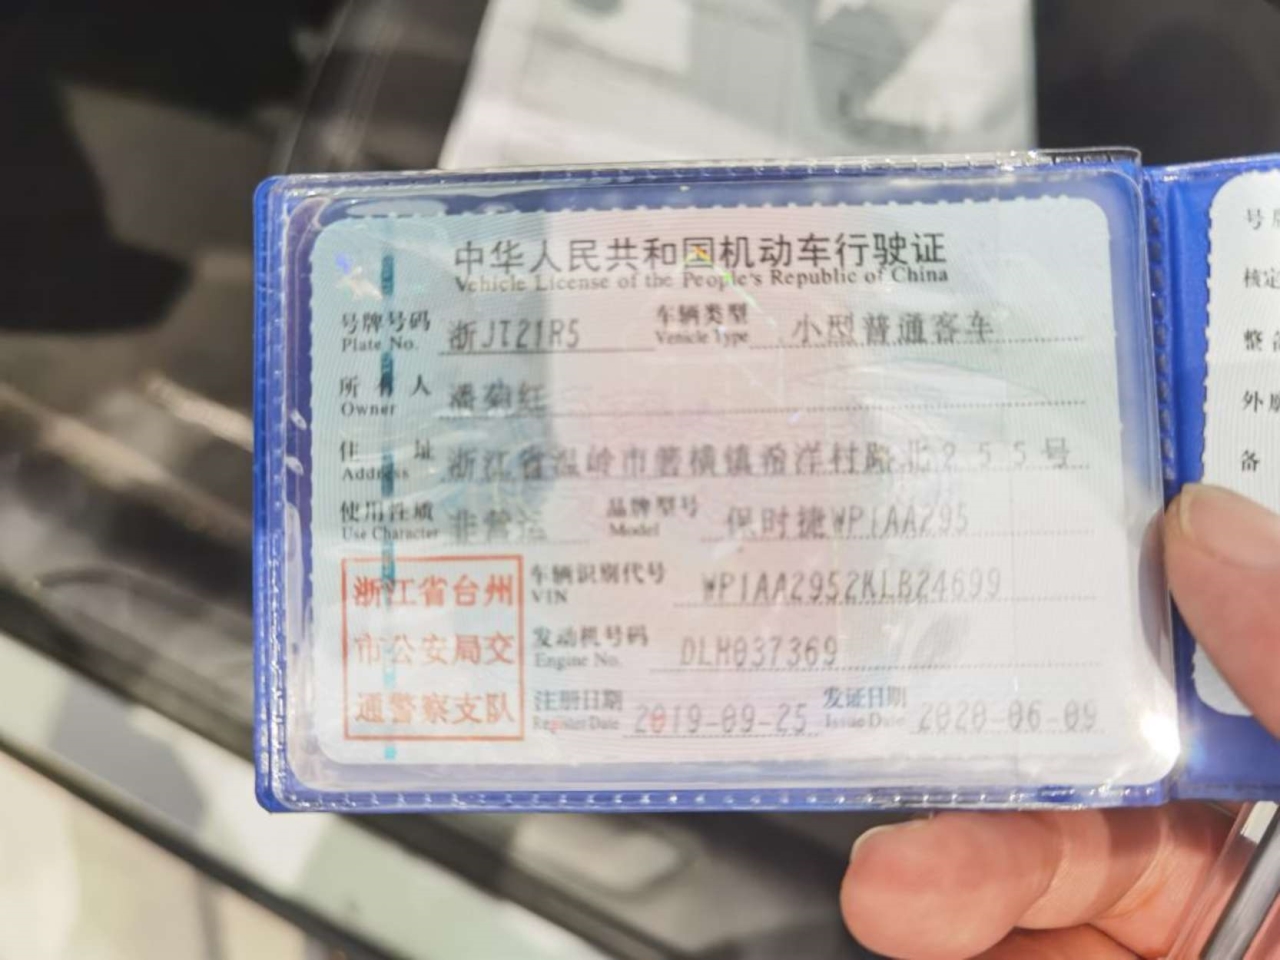 中华人民共和国机动车行驶证
Vehicle License of the People's Republic of China
号牌号码 浙JT21R5 车辆类型 小型普通客车
Plate No. Vehicle Type
所有人 潘菊红
Owner
住址 浙江省温岭市箬横镇希洋村路北255号
Address
使用性质 非营运 品牌型号 保时捷WP1AA295
Use Character Model
浙江省台州
市公安局交
通警察支队
车辆识别代号 WP1AA2952KLB24699
VIN
发动机号码 DLH037369
Engine No.
注册日期 2019-09-25 发证日期 2020-06-09
Register Date Issue Date
号
核定
整
外
备